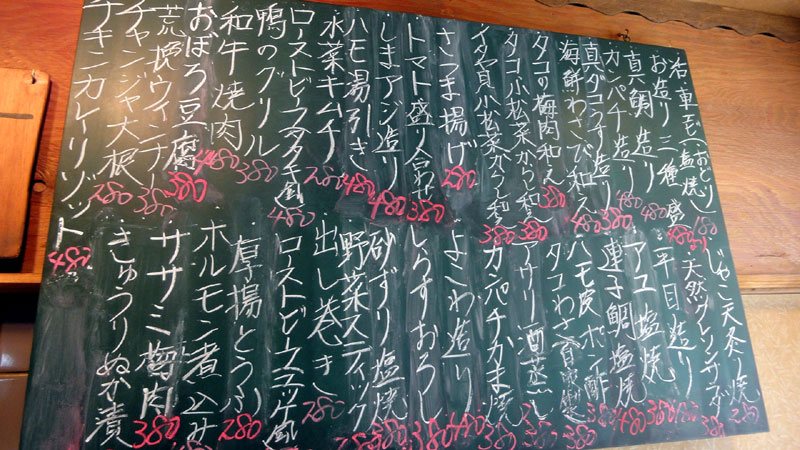 活車エビ(おどり 塩焼) 480
お造り三種盛
真鯛造り 480
カンパチ造り 480
真ダコうす造り 380
海鮮わさび和え
タコの梅肉和え 380
タコ小松菜からし和え 380
イタヤ貝小松菜からし和え 380
さつま揚げ 280
トマト盛り合わせ 380
しまアジ造り 480
ハモ湯引き 480
水菜キムチ 280
ローストビーフタタキ風 480
鴨のグリル 380
和牛焼肉 480
おぼろ豆腐 380
荒挽ウィンナー 380
チャンジャ大根 280
チキンカレーリゾット 480
じゃこ天炙り焼 280
天然 380
平目造り 380
アユ塩焼 380
連子鯛塩焼 480
ハモ皮ポン酢 380
タコわさ自家製 380
アサリ酒蒸し 380
カンパチかま焼
よこわ造り 480
しらすおろし
砂ずり塩焼 380
野菜スティック
出し巻き 280
ローストビーフユッケ風
厚揚とうふ 280
ホルモン煮込み
ササミ梅肉 380
きゅうりぬか漬